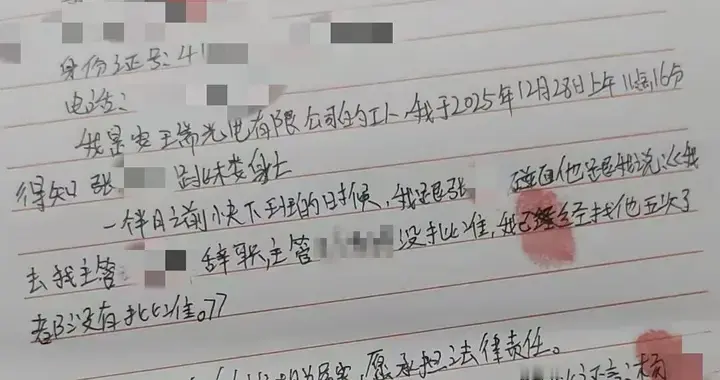 身份证号:41
电话:
我是安王 光电有限公司的工人 我于2025年12月28日上午11点16分
得知张 跳楼身亡
一个半月之前快下班的时候,我跟张 碰面他跟我说:《我
去找主管 辞职,主管 没批准,我已经找他五次了
都没有批准。77
,愿承担法律责任。
证言:杨